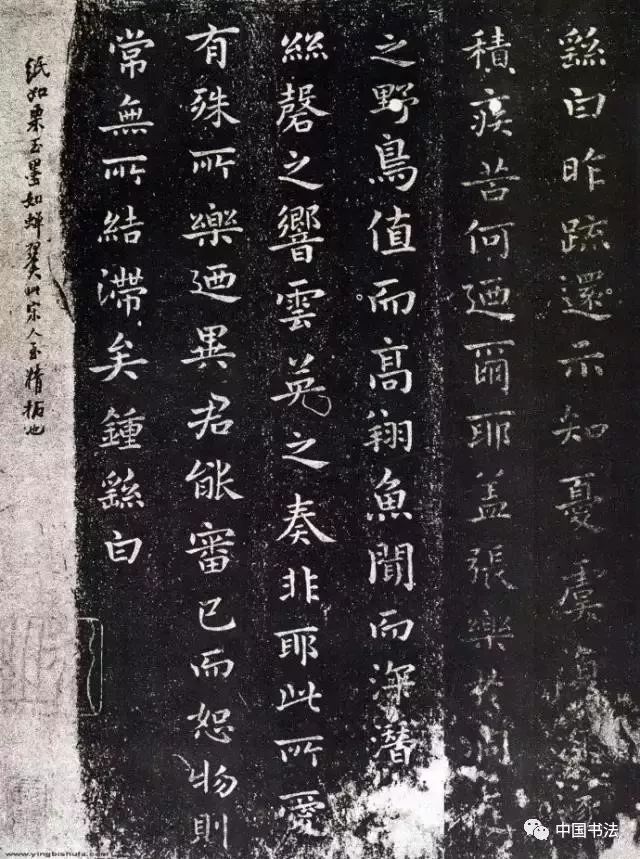 繇白昨疏還示知憂虞復深遂
積疾苦何迺爾耶盖張樂於洞庭
之野鳥值而高翔魚聞而深潛
絲磬之響雲英之奏非耶此所愛
有殊所樂迺異君能審己而恕物則
常無所結滯矣鍾繇白
紙如栗玉墨如蟬翼此宋人至精拓也
中国书法
www.yingbishufa.com